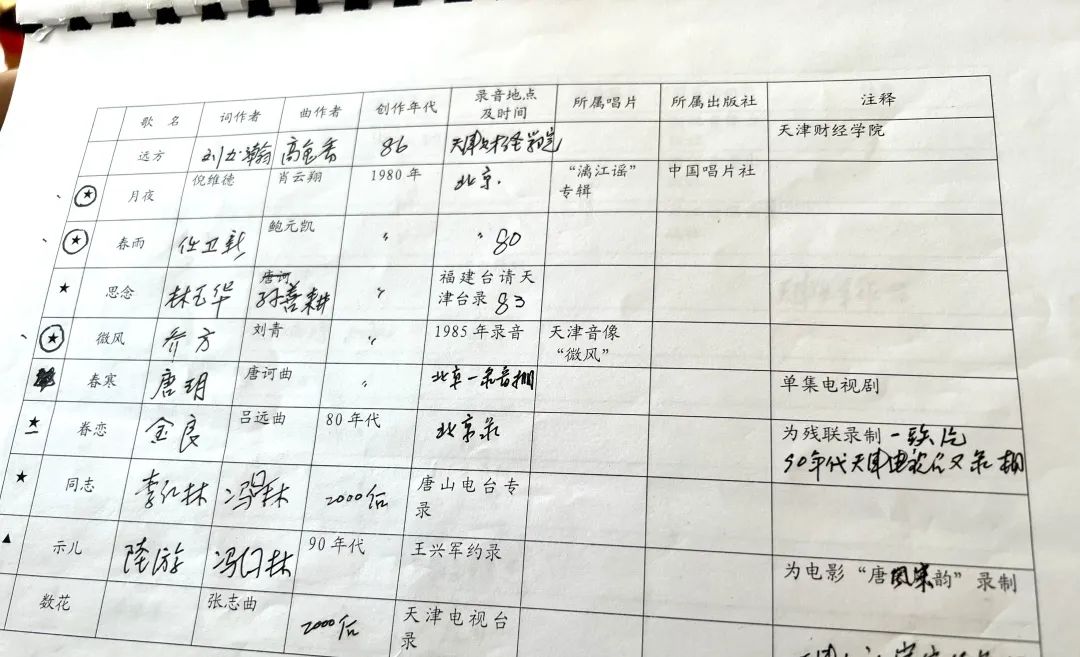 歌 名 词作者 曲作者 创作年代 录音地点及时间 所属唱片 所属出版社 注释
远方 86 天津财经学院 天津财经学院
月夜 倪维德 肖云翔 1980年 北京. “漓江谣”专辑 中国唱片社
春雨 鲍元凯 〃 〃 80
思念 林玉华 孙善耕 〃 福建台请天津台录 83
微风 乔方 刘青 〃 1985年录音 天津音像“微风”
春寒 唐玥 唐诃曲 〃 北京一录音棚 单集电视剧
春恋 金良 吕远曲 80年代 北京录 为残联录制
90年代天津
同志 李仁林 2000后 唐山电台专录
示儿 陆游 90年代 王兴军约录 为电影“唐宋韵”录制
数花 张志曲 2000后 天津电视台录